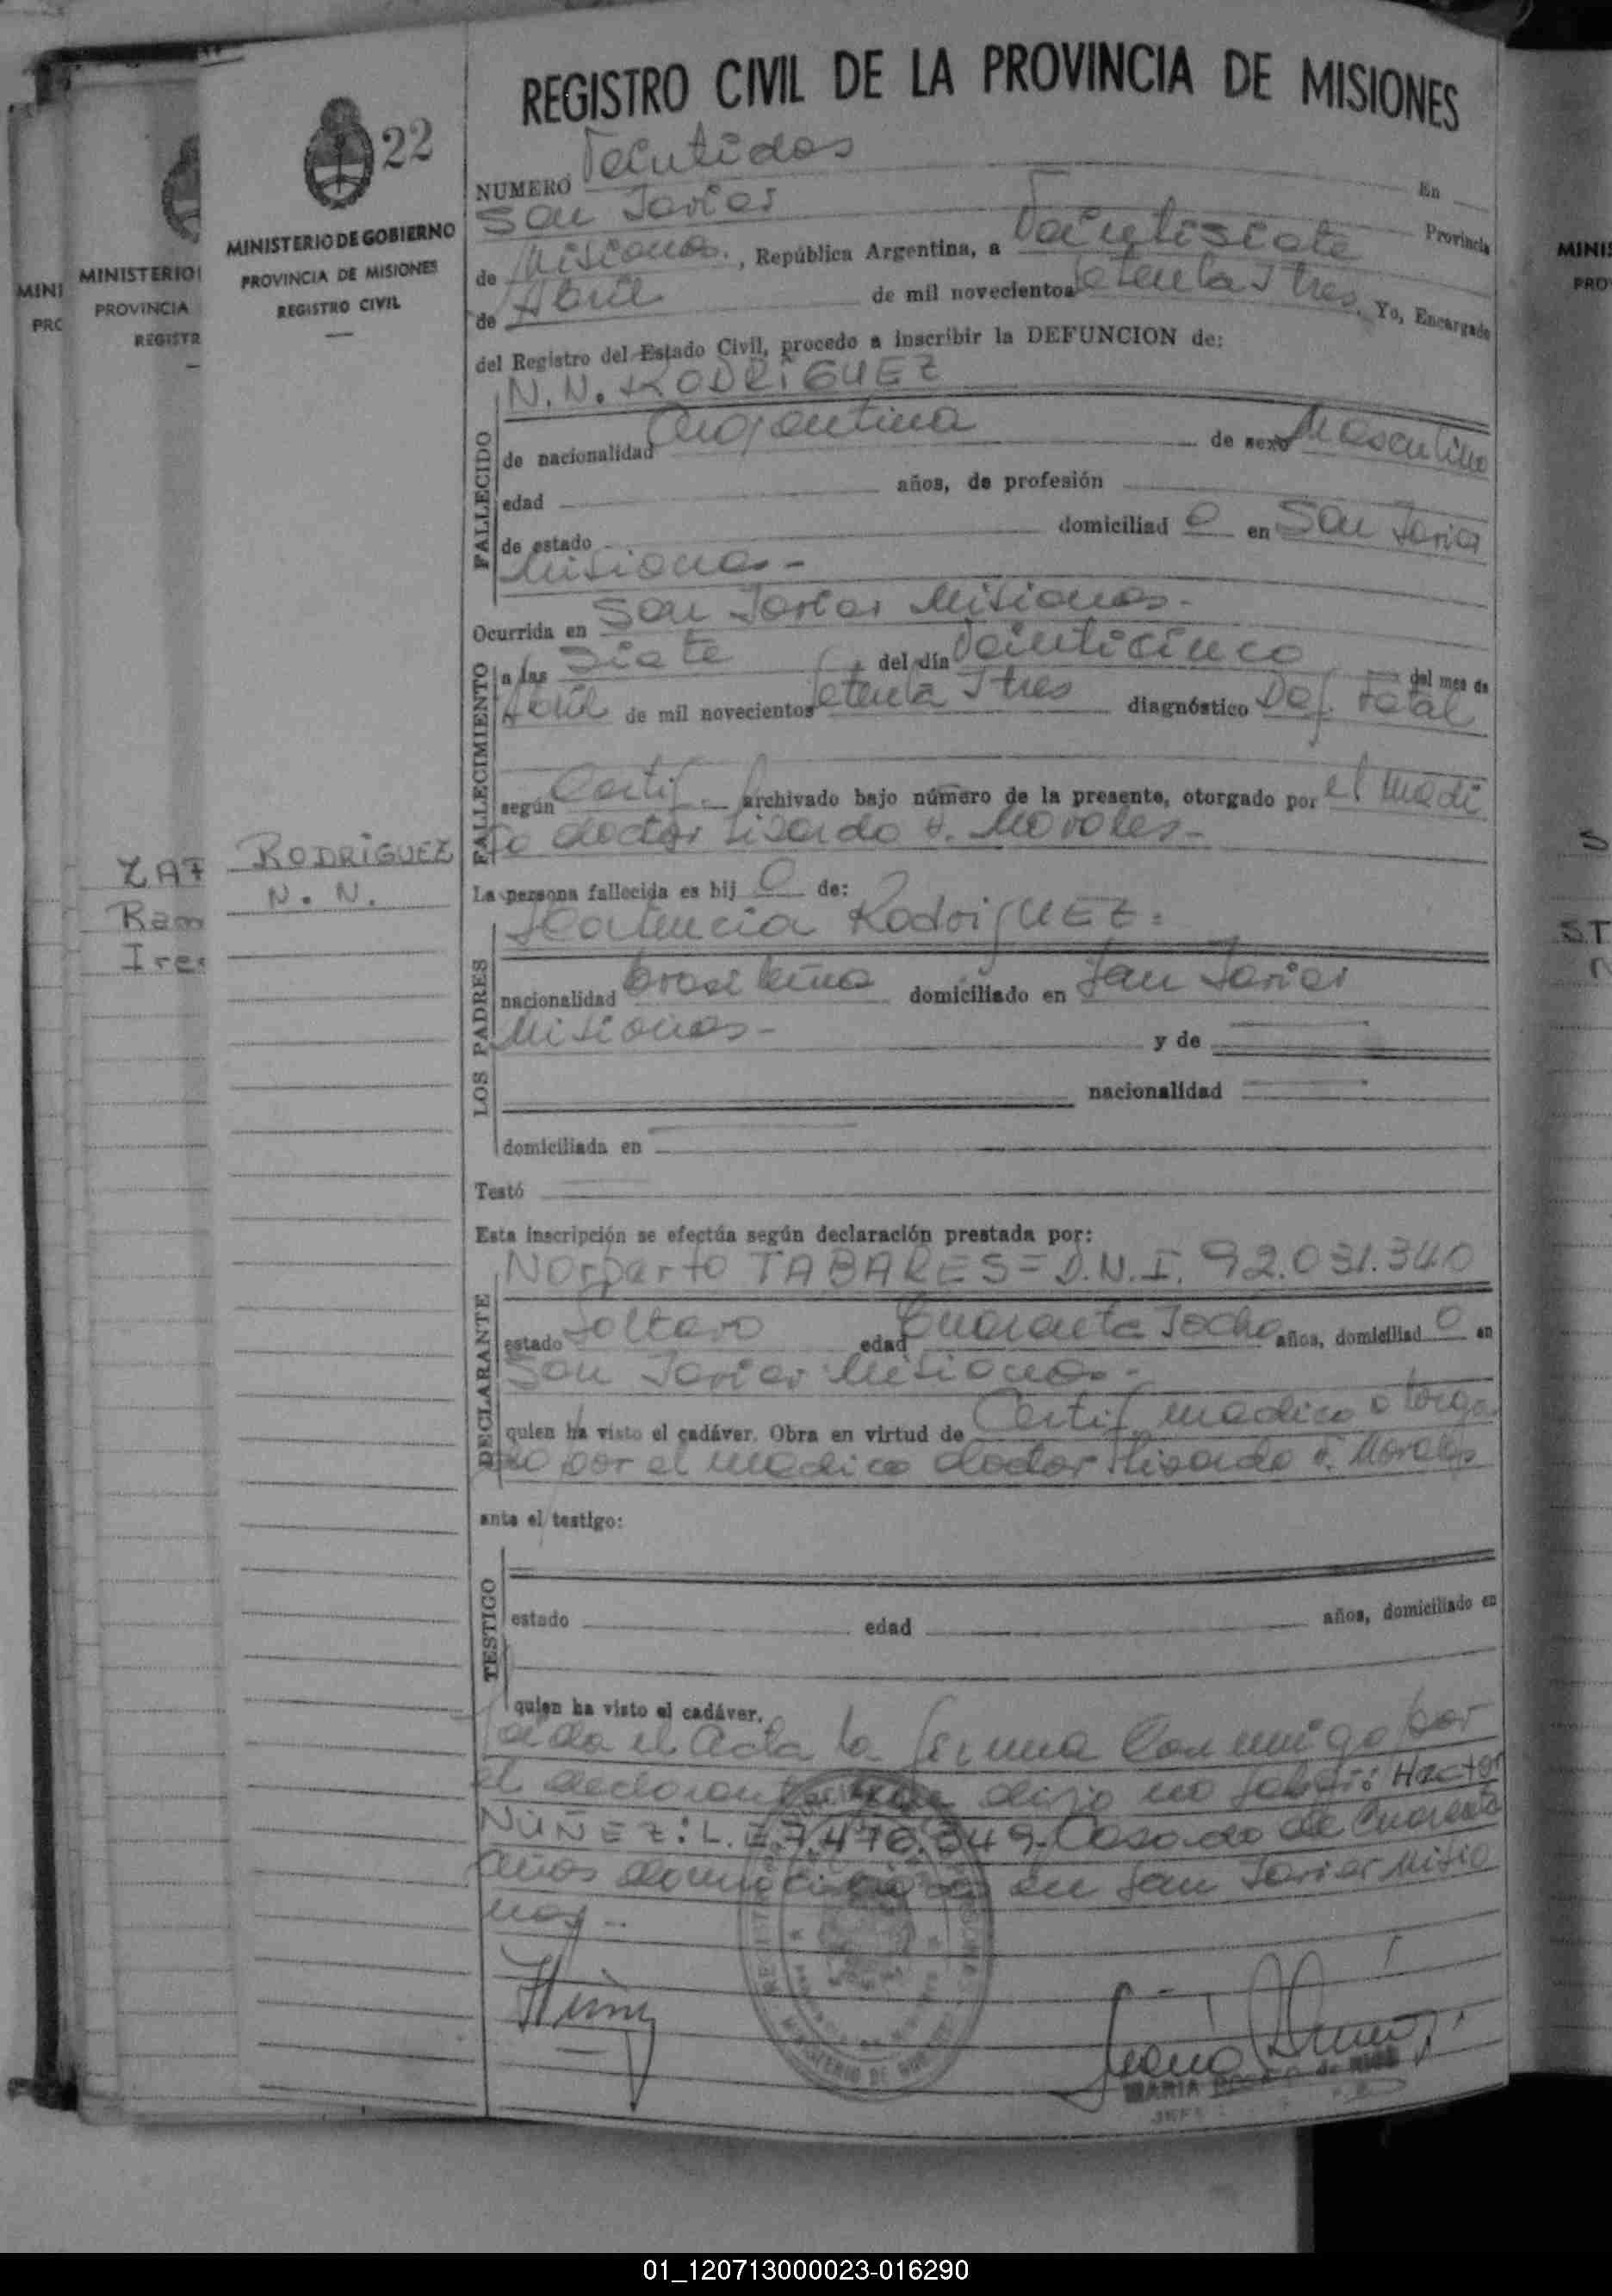 REGISTRO CIVIL DE LA PROVINCIA DE MISIONES
22
MINISTERIO DE GOBIERNO
PROVINCIA DE MISIONES
REGISTRO CIVIL
NUMERO Veintidos En
San Javier Provincia
de Misiones, República Argentina, a Veintisiete
de Abril de mil novecientos setenta y tres, Yo, Encargado
del Registro del Estado Civil, procedo a inscribir la DEFUNCION de:
N. N. RODRIGUEZ
FALLECIDO
de nacionalidad Argentina de sexo Masculino
edad años, de profesión
de estado domiciliad o en San Javier
Misiones-
Ocurrida en San Javier Misiones-
FALLECIMIENTO
a las Siete del día Veinticinco del mes de
Abril de mil novecientos setenta y tres diagnóstico Def. Fetal
según Certif. archivado bajo número de la presente, otorgado por el medi
co doctor Lisardo Morales-
RODRIGUEZ
N. N.
La persona fallecida es hij o de:
Rodriguez=
LOS PADRES
nacionalidad brasileña domiciliado en San Javier
Misiones- y de
nacionalidad
domiciliada en
Testó
Esta inscripción se efectúa según declaración prestada por:
Norberto TABARES= D.N.I. 92.031.340
DECLARANTE
estado Soltero edad Cuarenta y ocho años, domiciliad o en
San Javier Misiones-
quien ha visto el cadáver. Obra en virtud de Certif medico otorga
do por el medico doctor Lisardo Morales
ante el testigo:
TESTIGO
estado edad años, domiciliado en
quien ha visto el cadáver.
Leida el Acta la firma Conmigo por
el declarante que dijo no saber: Hector
NUÑEZ: L.E. 7.476.349- Casado de Cuarenta
años domiciliado en San Javier Misio
nes--
MARIA
JEFE
MINI
PRO
MINISTERIO
PROVINCIA
REGISTR
ZAT
Ram
Ire
MINI
PRO
01_120713000023-016290